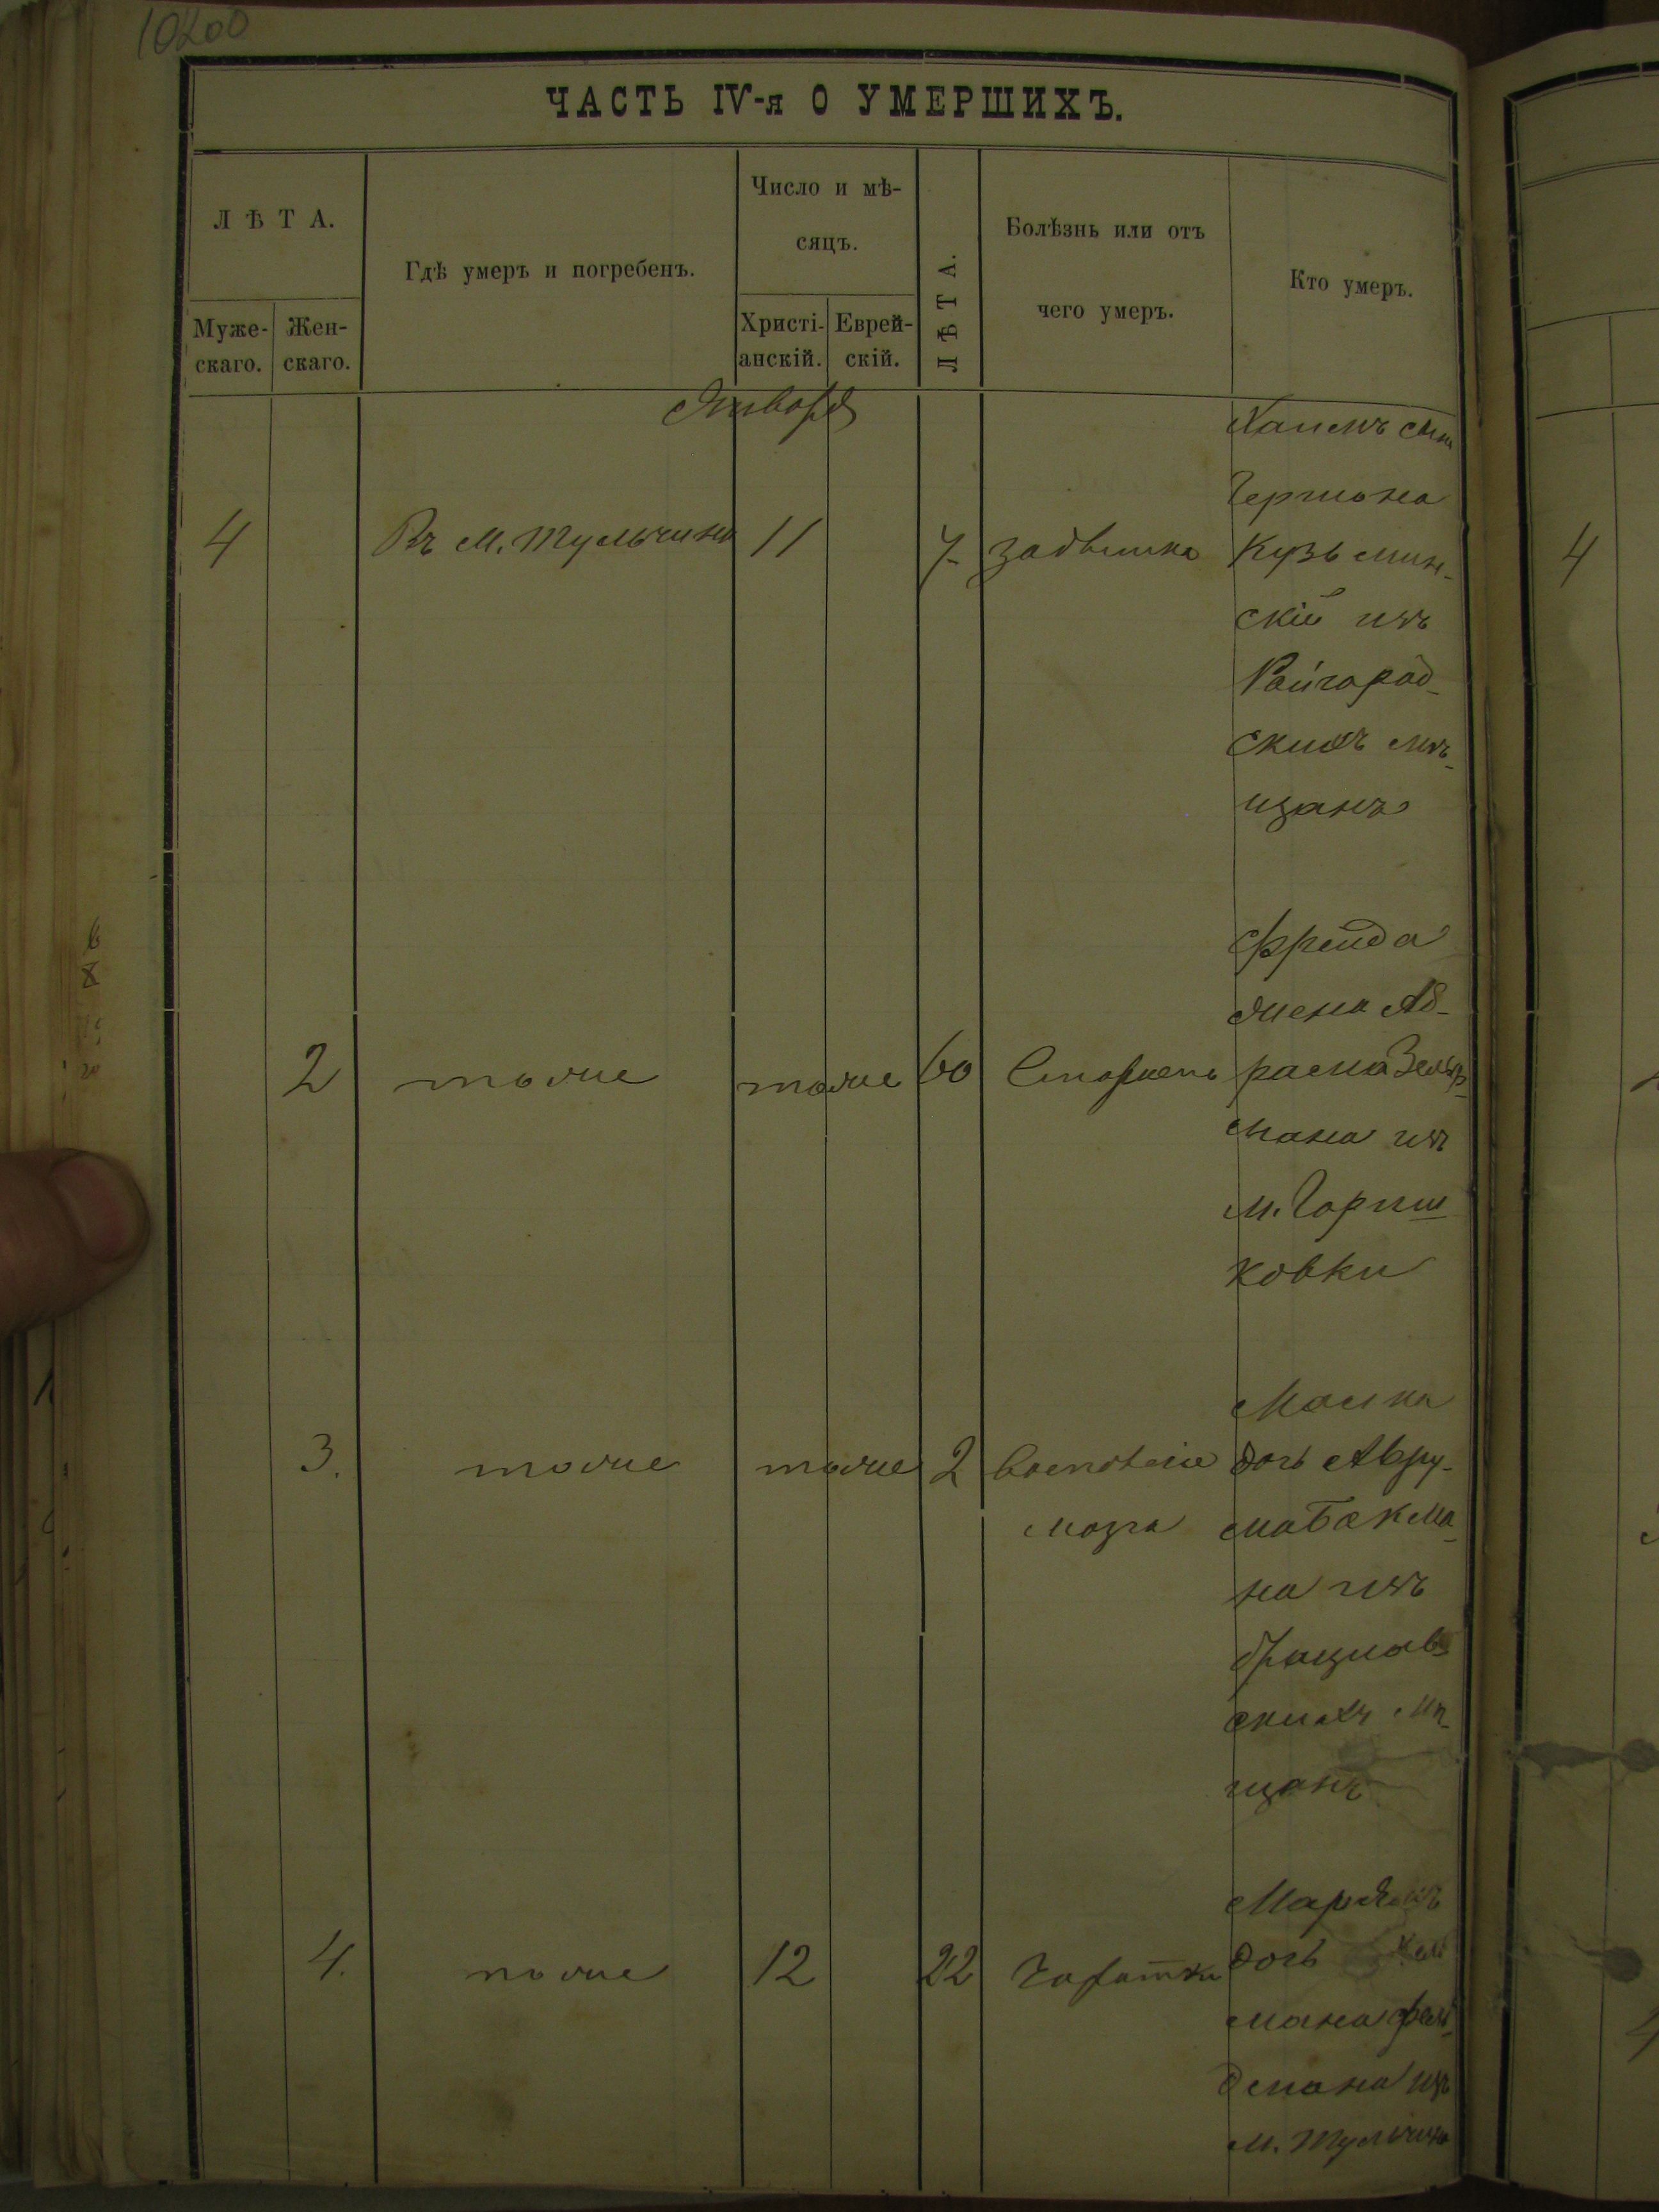 10200
ЧАСТЬ IV-я О УМЕРШИХЪ.
ЛѢТА.
Мужескаго.
Женскаго.
Гдѣ умеръ и погребенъ.
Число и мѣ-
сяцъ.
Христі-
анскій.
Еврей-
скій.
ЛѢТА.
Болѣзнь или отъ
чего умеръ.
Кто умеръ.
Января
4
Въ м. Тульчинѣ
11
7
задышка
Хаимъ сынъ
Гершона
Кузьмин-
скій изъ
Райгород-
скихъ мѣ-
щанъ
4
2
тоже
тоже
60
Старость
Фрейда
жена Аб-
рама Зельц-
мана изъ
м. Гориш
ковки
3.
тоже
тоже
2
воспаленіе
мозга
Малка
дочь Авру-
ма Бакма-
на изъ
брацлав-
скихъ мѣ-
щанъ
4.
тоже
12
22
Чахотки
Марьямъ
дочь
мана Фель-
дмана изъ
м. Тульчина